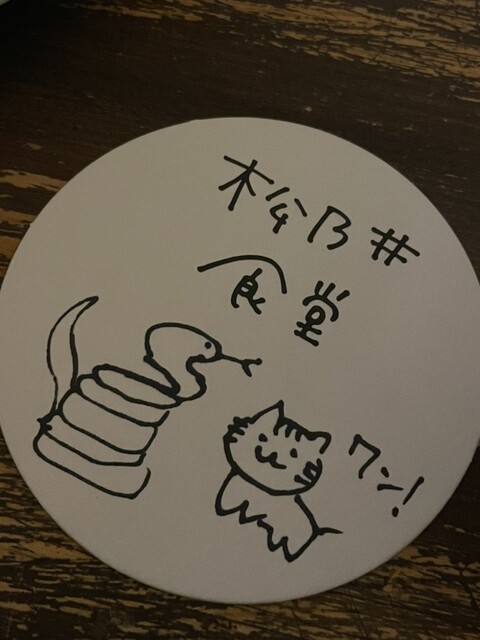 松乃井
食堂
ワン!